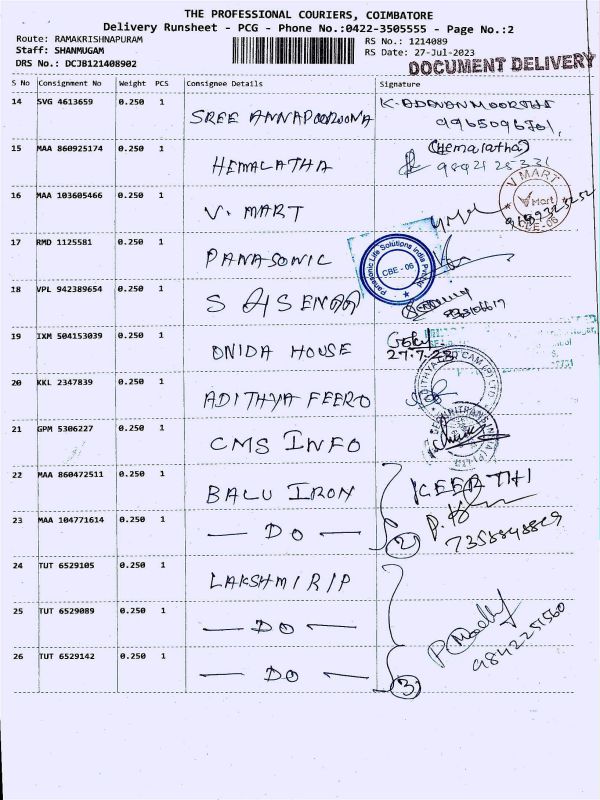 THE PROFESSIONAL COURIERS, COIMBATORE
Delivery Runsheet - PCG - Phone No.:0422-3505555 - Page No.:2
Route: RAMAKRISHNAPURAM RS No.: 1214089
Staff: SHANMUGAM RS Date: 27-Jul-2023
DRS No.: DCJB121408902 DOCUMENT DELIVERY
S No Consignment No Weight PCS Consignee Details Signature
14 SVG 4613659 0.250 1 SREE ANNAPOOROONA
15 MAA 860925174 0.250 1 HEMALATHA (Hemalatha)
16 MAA 103605466 0.250 1 V. MART
V MART
V Mart
CBE-06
17 RMD 1125581 0.250 1 PANASONIC
Panasonic Life Solutions India Pvt Ltd
CBE - 06
18 VPL 942389654 0.250 1
19 IXM 504153039 0.250 1 ONIDA HOUSE
27.7.23
20 KKL 2347839 0.250 1 ADITHYA FEERO
21 GPM 5306227 0.250 1 CMS INFO
22 MAA 860472511 0.250 1 BALU IRON KEERTHI
23 MAA 104771614 0.250 1 — DO — 2
7358848829
24 TUT 6529105 0.250 1 LAKSHMI RIP
25 TUT 6529089 0.250 1 — DO —
9842251560
26 TUT 6529142 0.250 1 — DO — 3